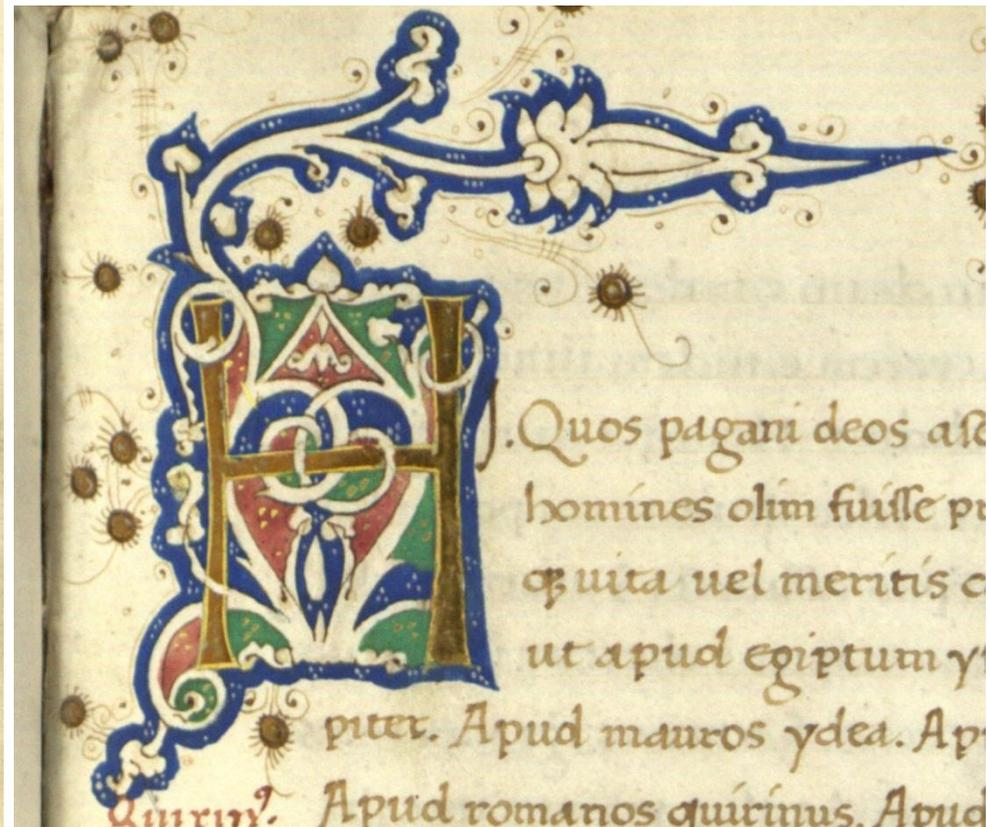 H
I.Quos pagani deos asc
homines olim fuisse pr
qꝫ uita uel meritis c
ut apud egiptum y
piter. Apud mauros ydea. Ap
Quirinꝰ. Apud romanos quirinus. Apud